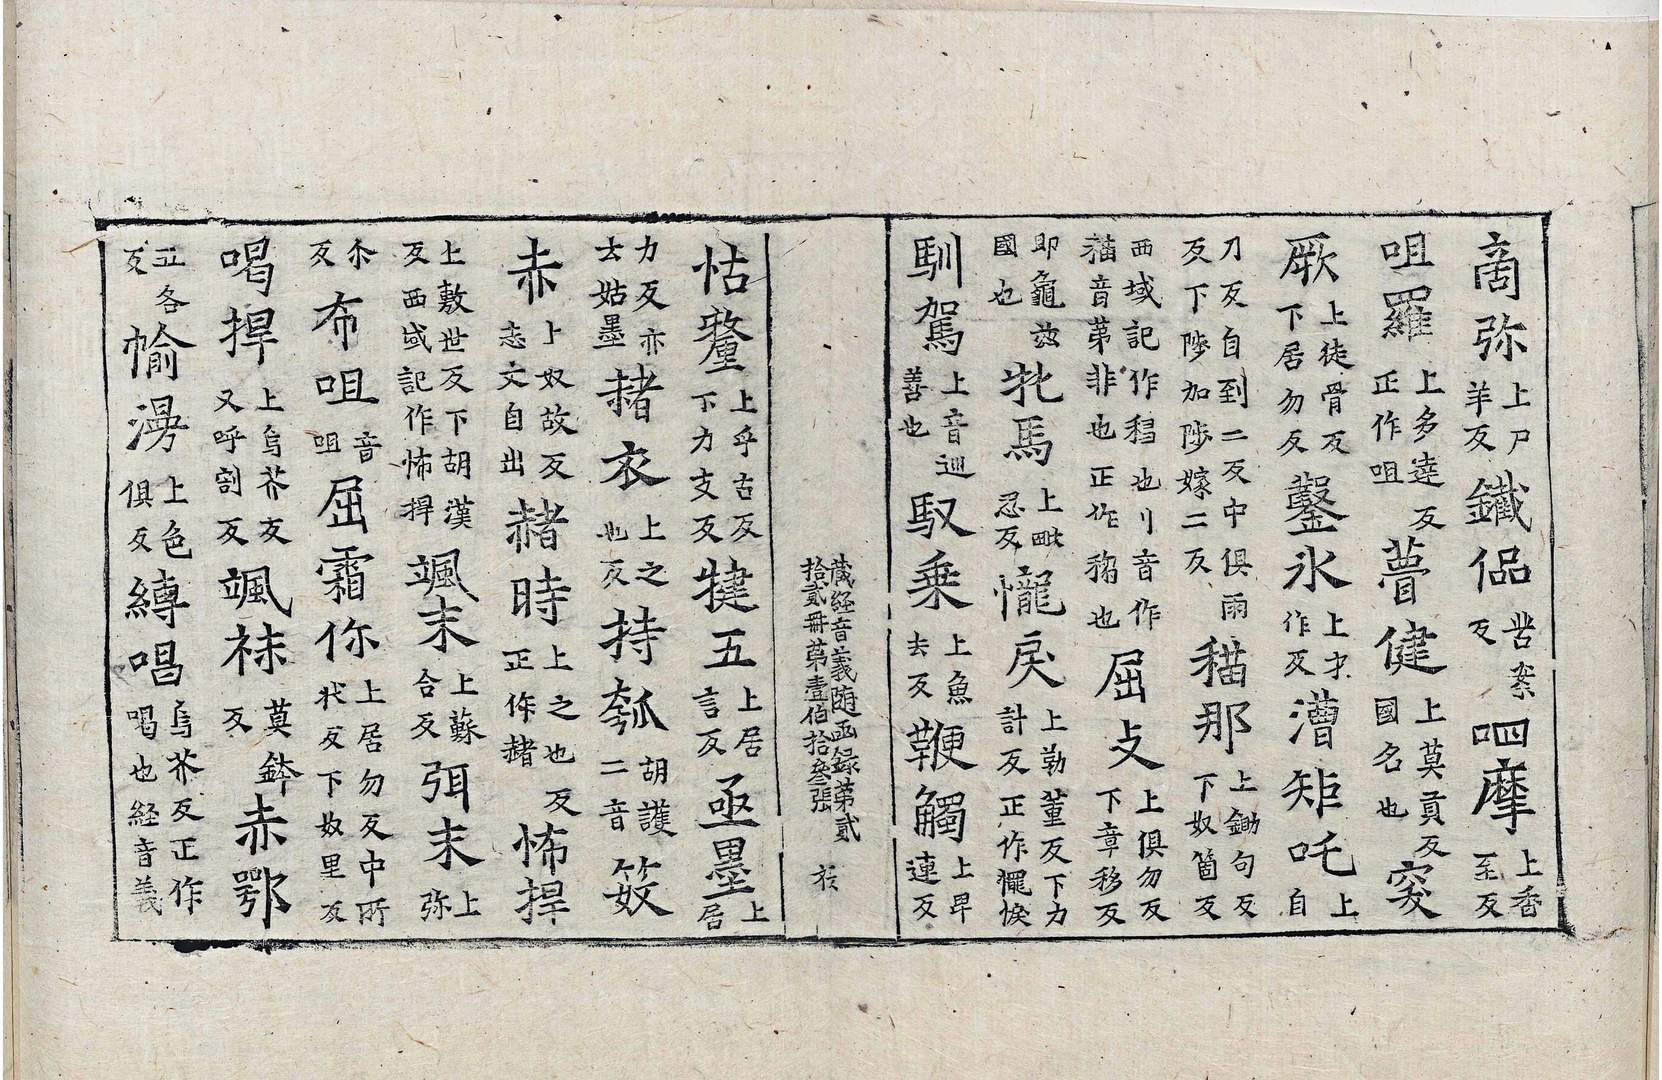 啇弥上尸羊反鑯侣苦奚反呬摩上香至反
咀羅上多達反正作咀瞢健上莫貢反國名也窣
厥上徒骨反下居勿反鑿氷上才作反漕矩吒上自
刀反自到二反中俱雨反下陟加陟嫁二反稩那上鋤句反下奴箇反
西域記作穛也刂音作稩音苐非也正作穛也屈支上俱勿反下章移反
即龜茲國也牝馬上毗忍反懺戾上勒董反下力計反正作㦬悷
馴駕上音巡善也馭乗上魚去反鞭觸上卑連反
藏経音義随函録苐貳拾貳冊苐壹伯拾叄張
怙氂上乎古反下力支反犍五上居言反亟墨上居
力反亦云姑墨赭衣上之也反持瓠胡護二音笯
赤上奴故反志文自出赭時上之也反正作赭怖捍
上敷世反下胡漢反西域記作怖捍颯末上蘇合反弭末上弥
尒反布咀音咀屈霜你上居勿反中所状反下奴里反
喝捍上烏芥反又呼割反颯秣莫鉢反赤鄂
五各反愉漫上色俱反縛喝烏芥反正作喝也経音義